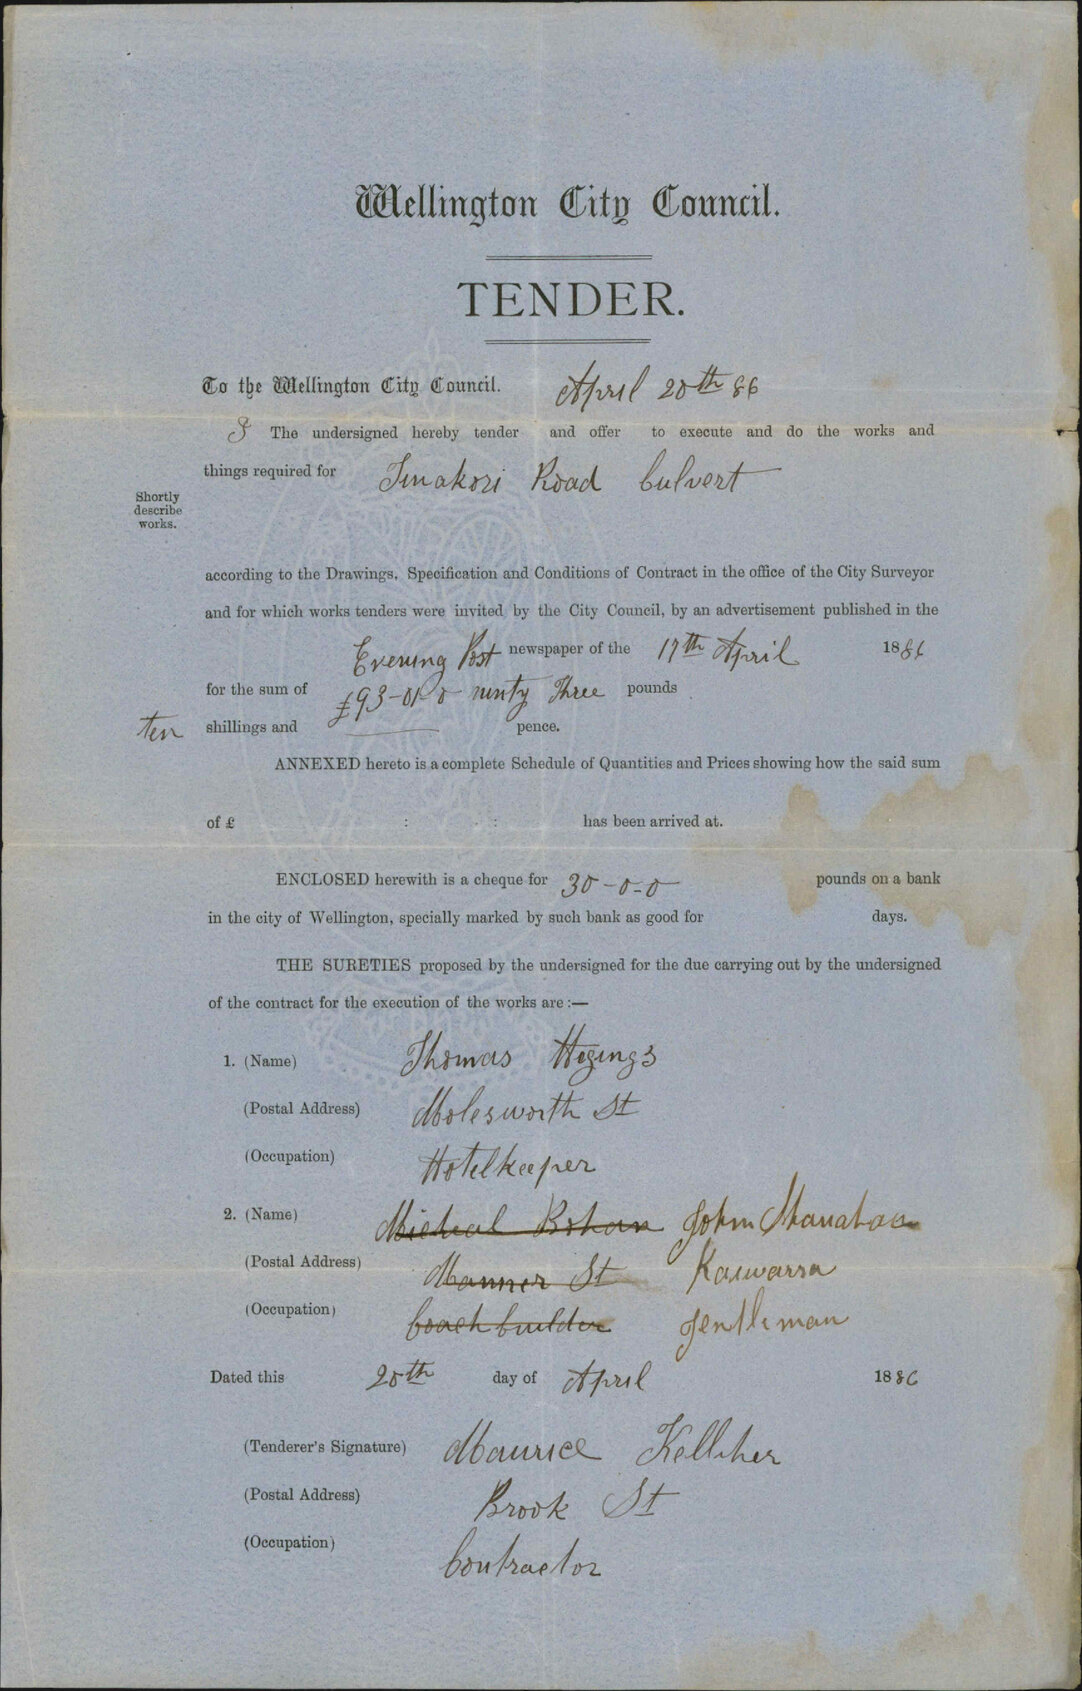 Wellington City Council.
TENDER.
To the Wellington City Council. April 20th 86
I The undersigned hereby tender and offer to execute and do the works and
things required for Tinakori Road Culvert
Shortly
describe
works.
according to the Drawings, Specification and Conditions of Contract in the office of the City Surveyor
and for which works tenders were invited by the City Council, by an advertisement published in the
Evening Post newspaper of the 17th April 1886
for the sum of £93- ninty Three pounds
ten shillings and pence.
ANNEXED hereto is a complete Schedule of Quantities and Prices showing how the said sum
of £ : : has been arrived at.
ENCLOSED herewith is a cheque for 30-0-0 pounds on a bank
in the city of Wellington, specially marked by such bank as good for days.
THE SURETIES proposed by the undersigned for the due carrying out by the undersigned
of the contract for the execution of the works are:—
1. (Name) Thomas
(Postal Address) Molesworth St
(Occupation) Hotelkeeper
2. (Name) Micheal Bohan John Manahan
(Postal Address) Manner St Kaiwarra
(Occupation) Coach builder Jentleman
Dated this 20th day of April 1886
(Tenderer's Signature) Maurice Kelliher
(Postal Address) Brook St
(Occupation) Contractor